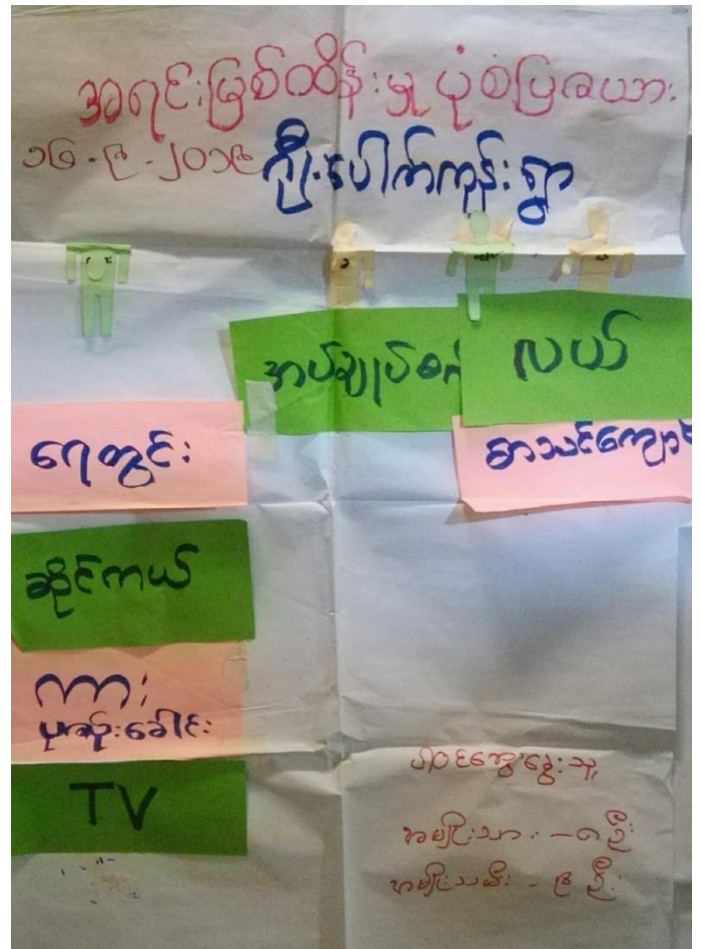 အရင်းမြစ်ထိန်းမှု ပုံစံပြဇယား
၁၆-၉-၂၀၁၉
ကြီးပေါက်ကုန်းရွာ
အပ်ချုပ်စက်
လယ်
ရေတွင်း
စာသင်ကျောင်း
ဆိုင်ကယ်
ကား
TV
ပါဝင်ဆွေးနွေးသူ
အမျိုးသား - ၈ ဦး
အမျိုးသမီး - ၉ ဦး